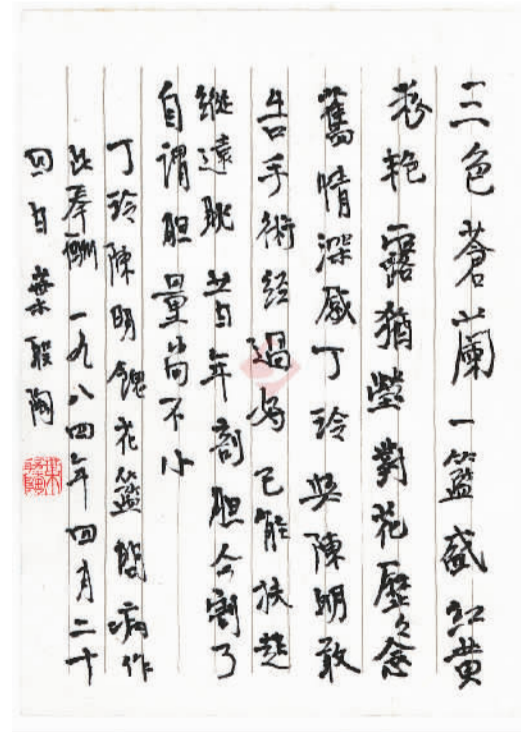 三色蒼蘭一籃盛紅黄
秀艳露猶瑩對花歷々念
舊情深感丁玲與陳明敢
告手術經過好已能扶起
縱遠眺昔年剖胆今割了
自謂胆量尚不小
丁玲陳明餽花籃問病作
此奉酬一九八四年四月二十
四日葉聖陶